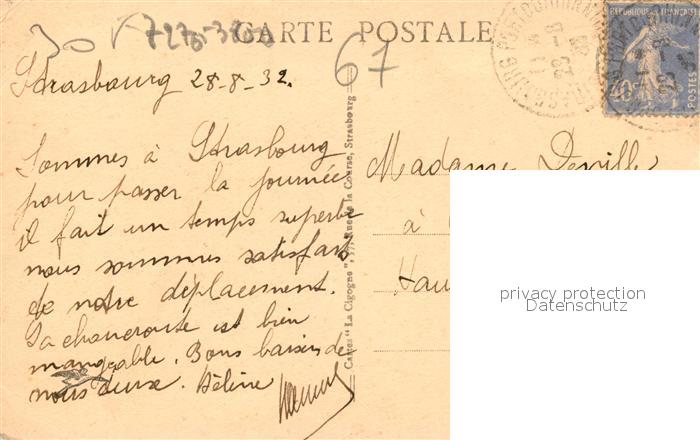 30 7275-3800
CARTE POSTALE
67
REPUBLIQUE FRANÇAISE
POSTES
40
Strasbourg 28-8-32.
Sommes à Strasbourg
pour passer la journée
il fait un temps superbe
nous sommes satisfait
de notre déplacement.
La choucroute est bien
mangeable. Bons baisers de
nous deux. Hélène
Cartes "La Cigogne", 37, Rue de la Course, Strasbourg
Madame Deville
à
Hau
privacy protection
Datenschutz